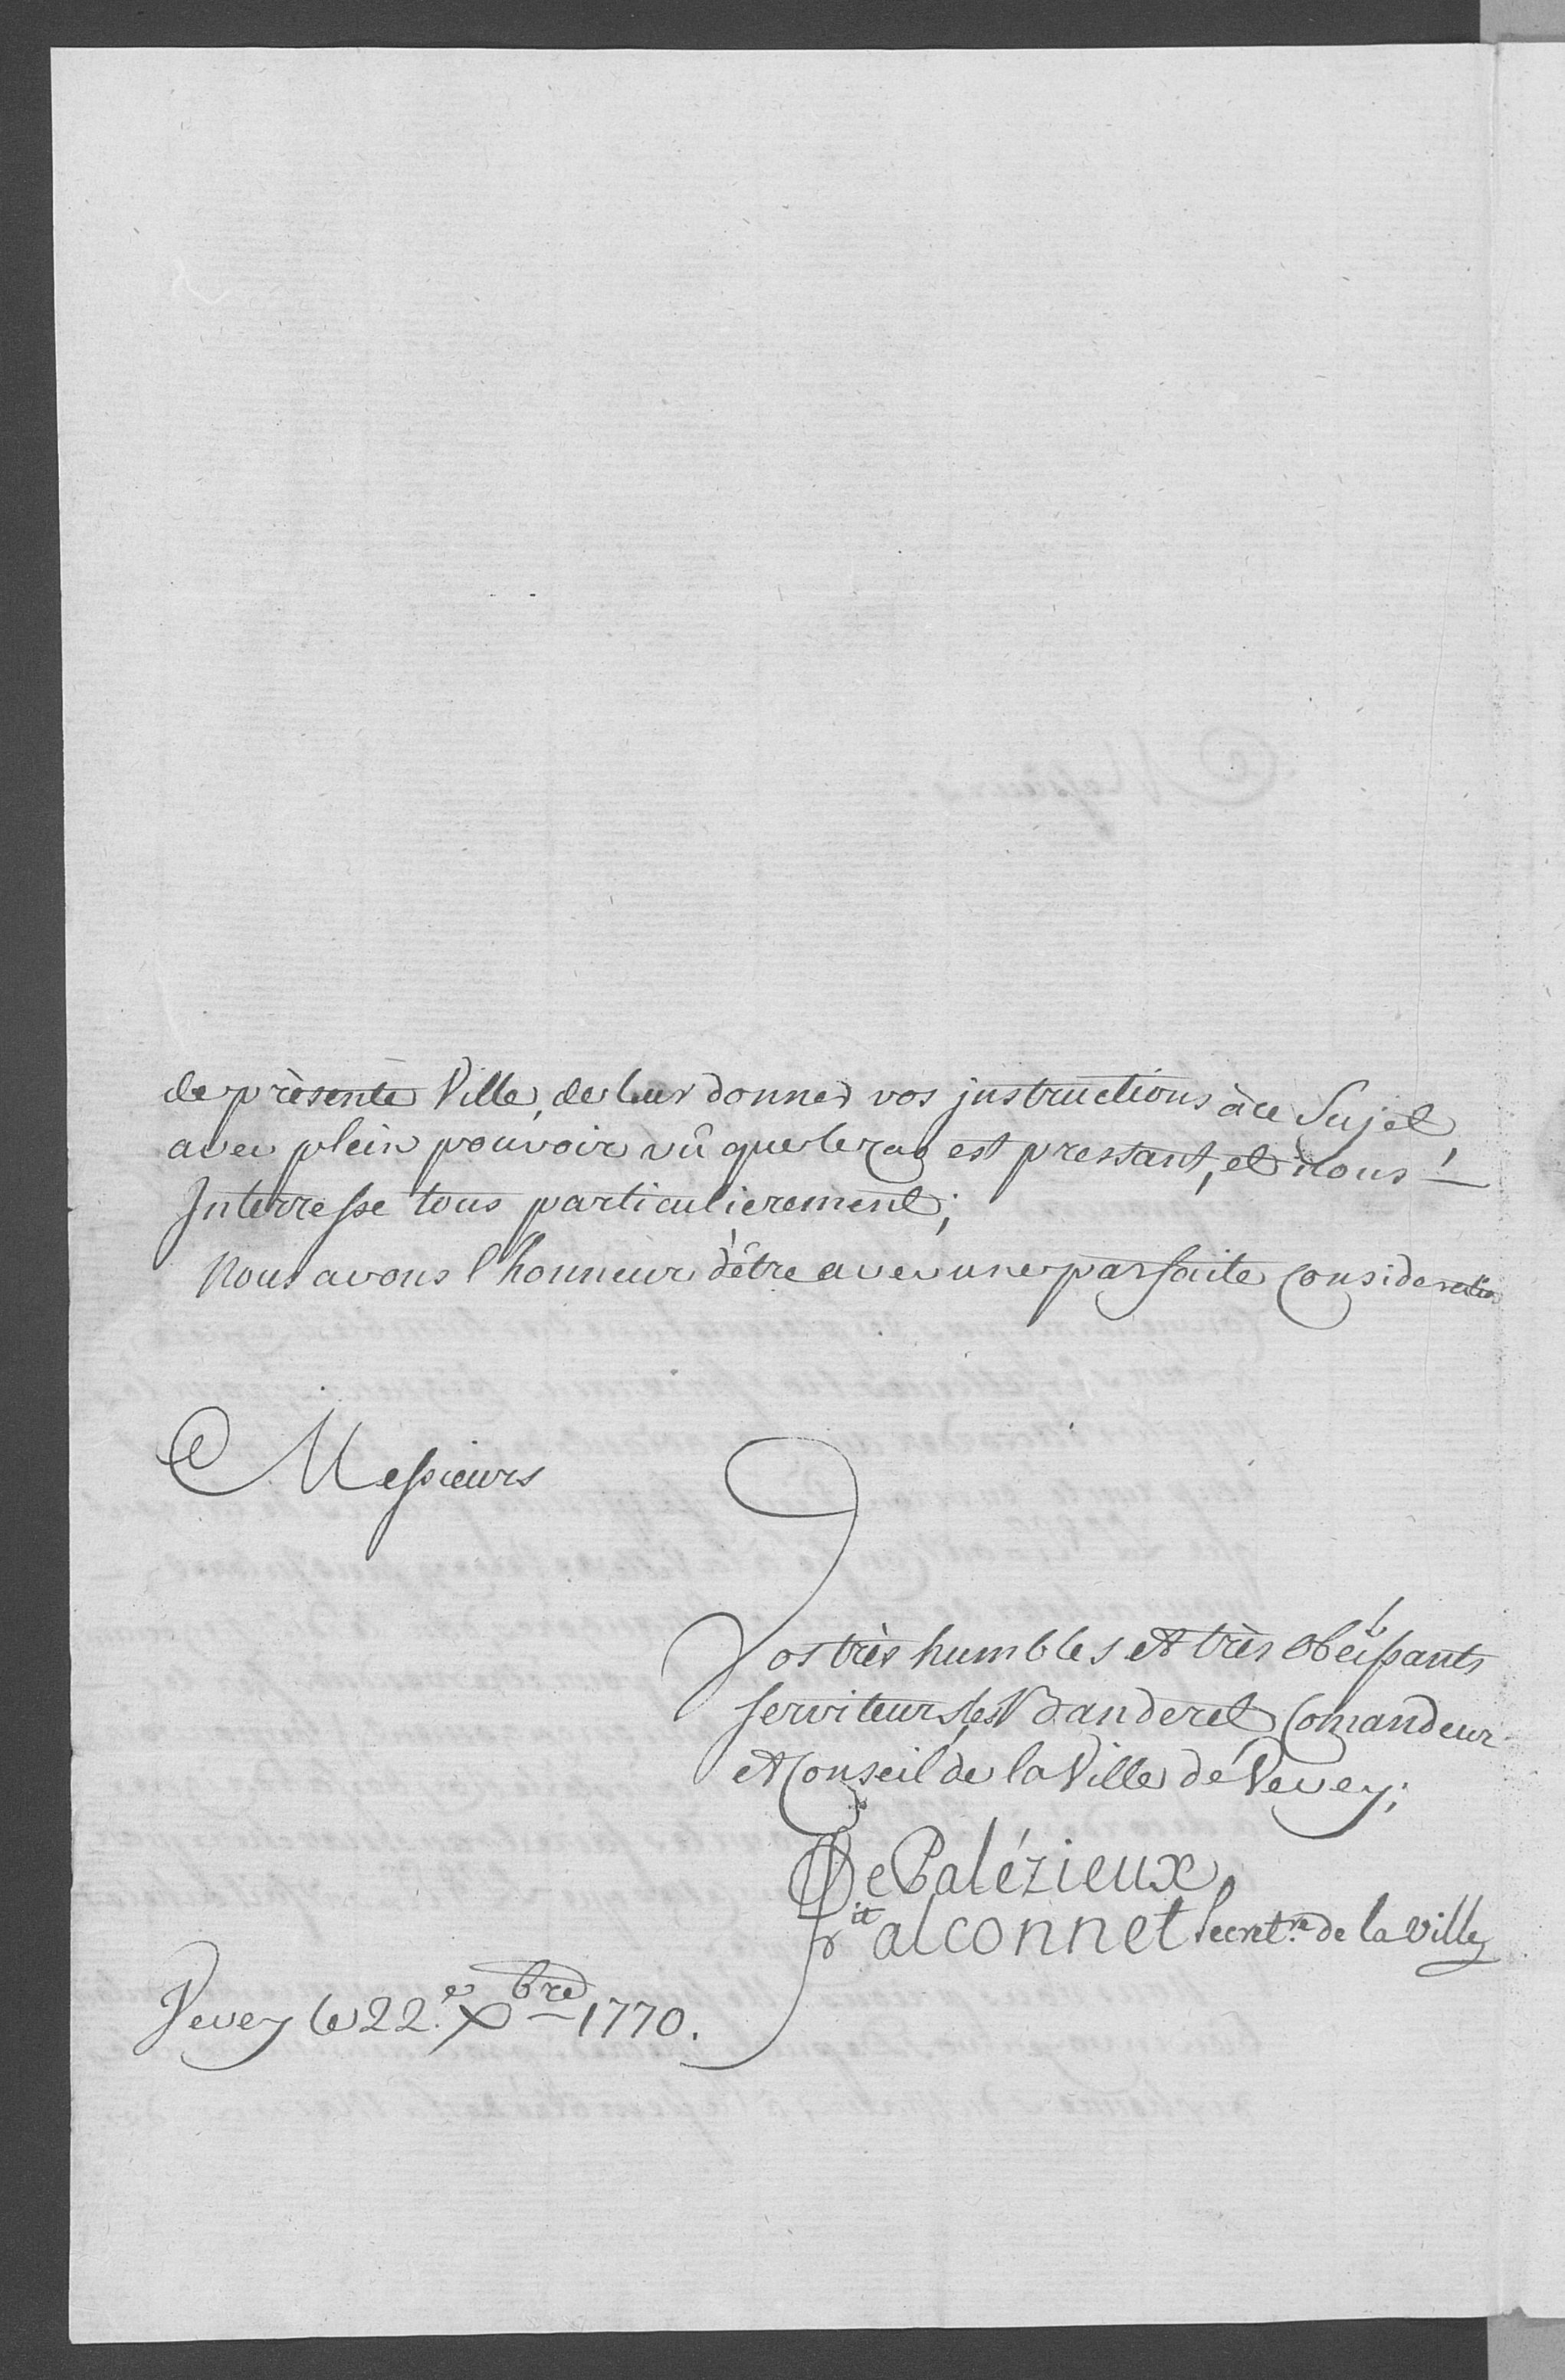 de prèsente Ville, de leur donner vos jnstructions à ce Sujet
avec plein pouvoir vû que le cas est pressant, et nous
Jnterresse tous particulierement;
Nous avons l'honneur d'être avec une parfaite Consideration
Messieurs
Vos très humbles et très obéissants
serviteurs, les Banderet Comandeur
et Conseil de la Ville de Vevey;
De Palézieux
alconnet Secret.re de la ville
Vevey le 22.e Xbre 1770.